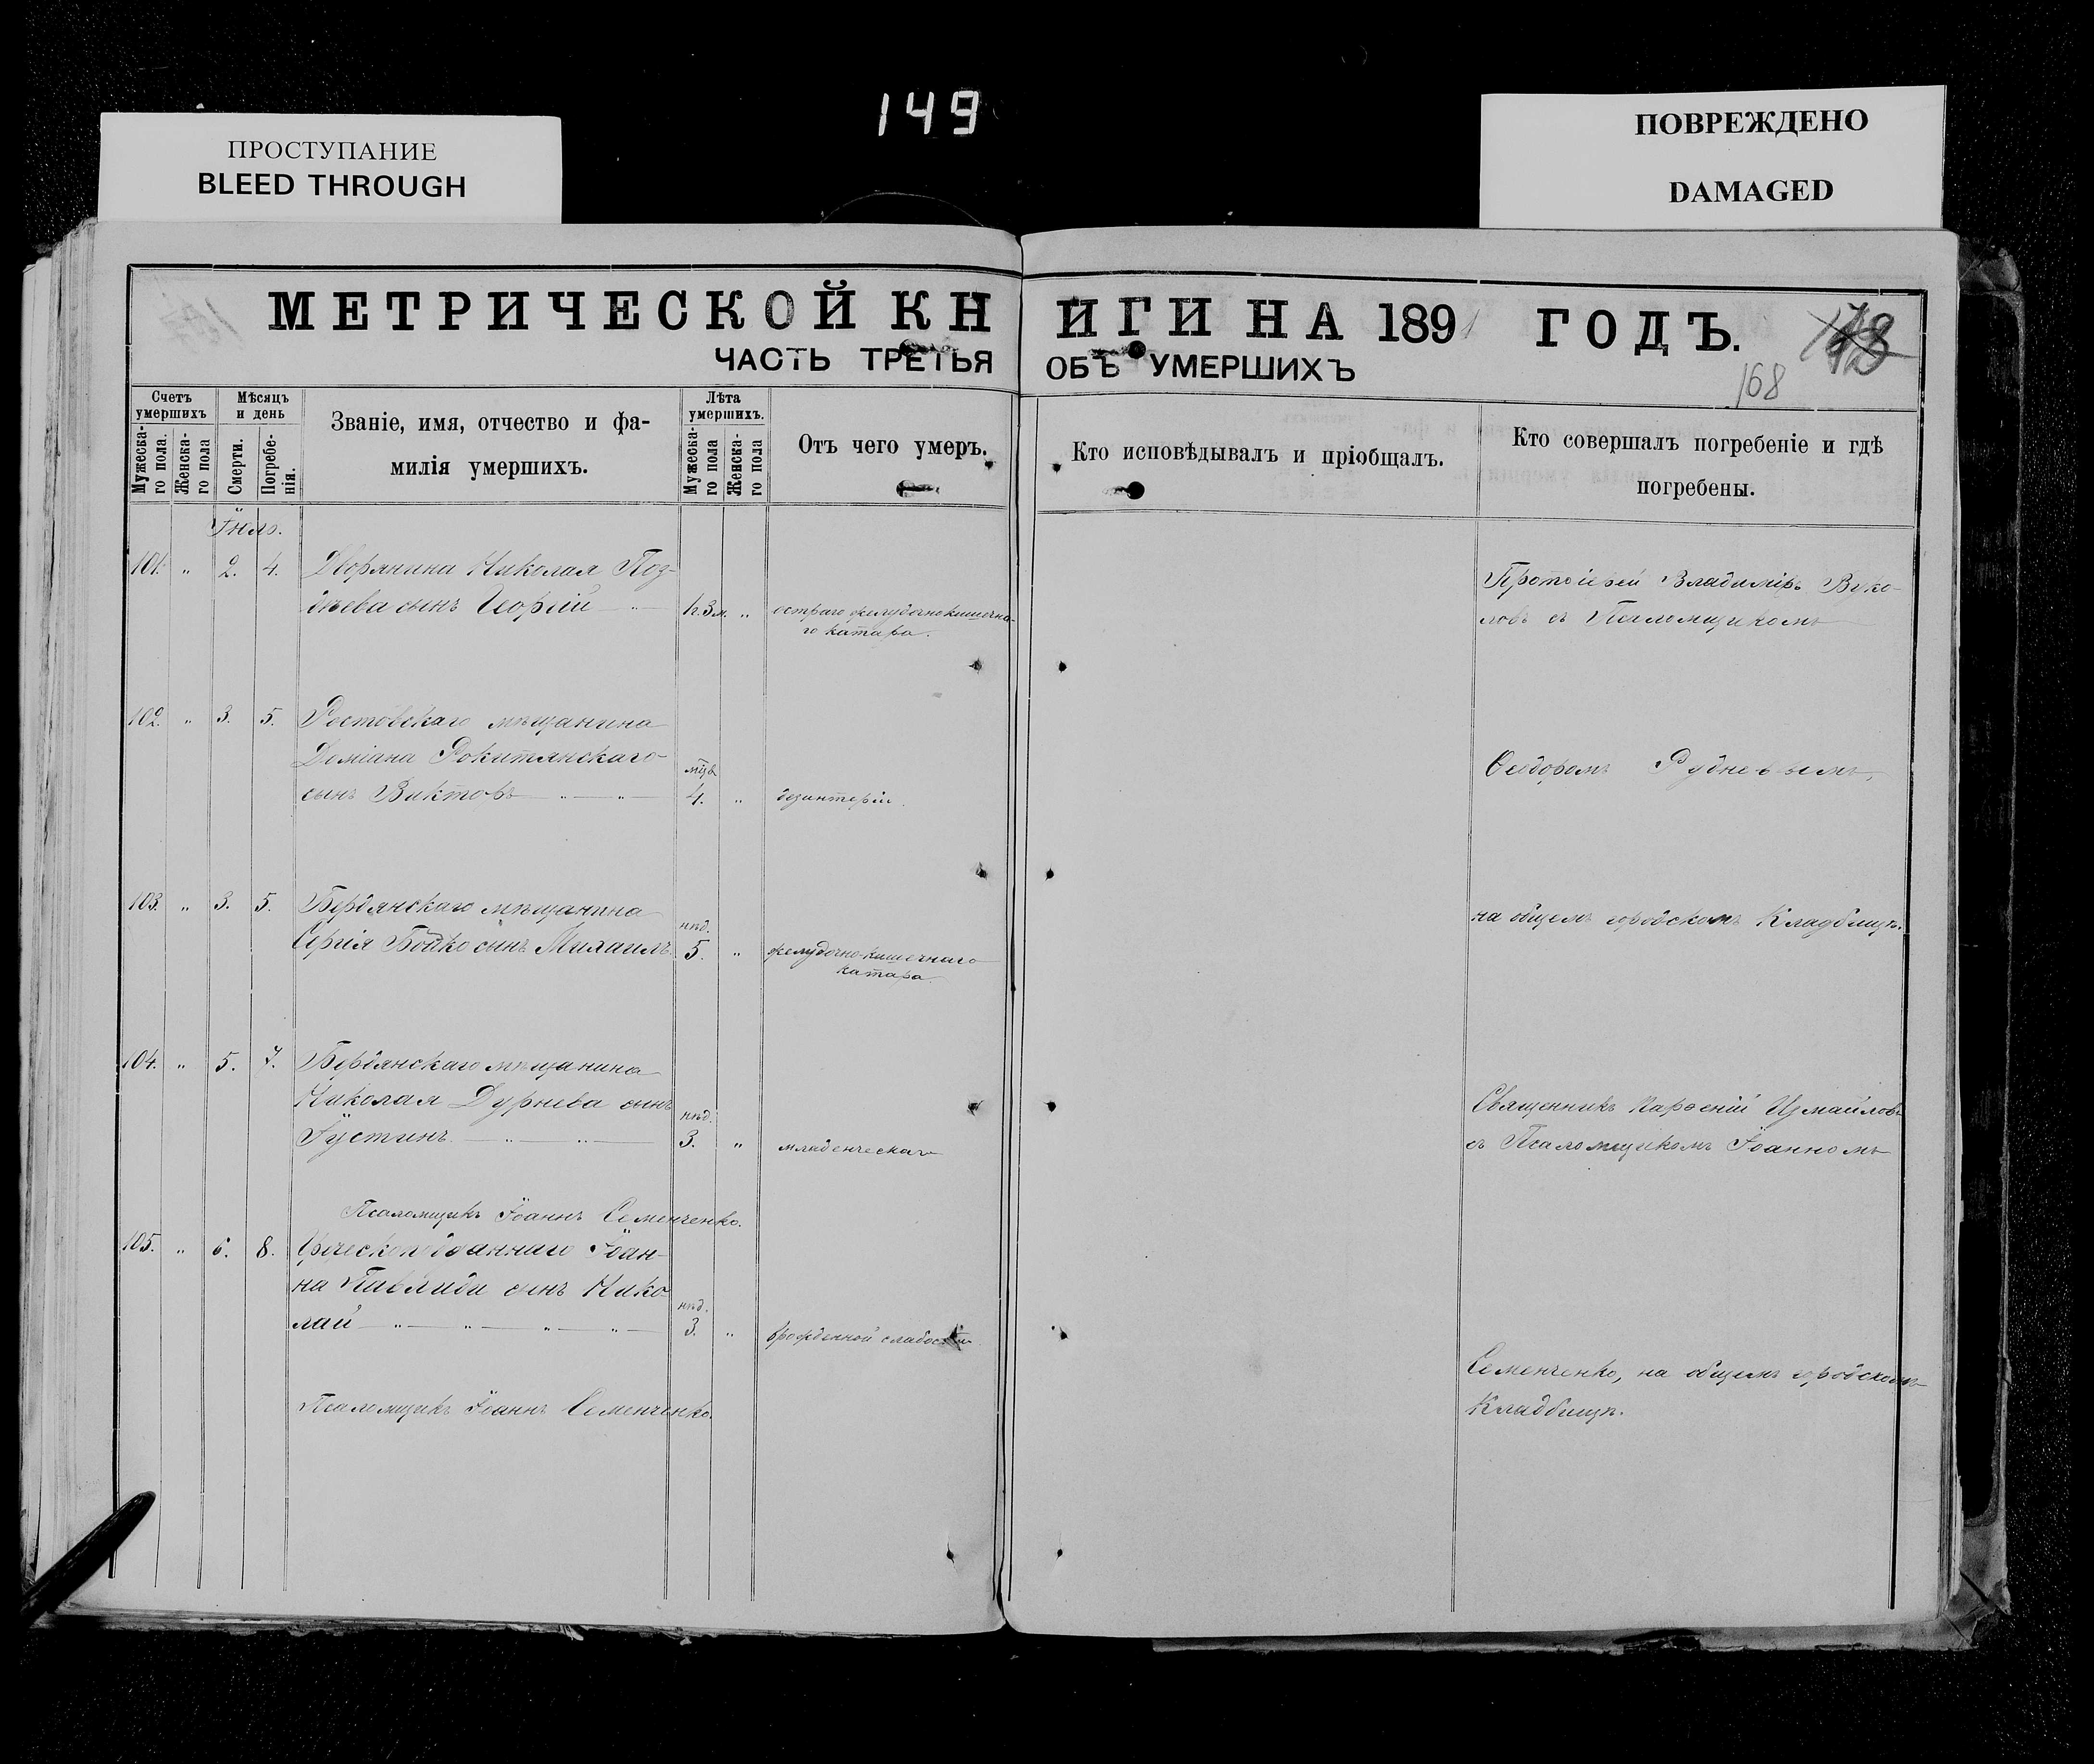 149
ПРОСТУПАНИЕ
BLEED THROUGH
ПОВРЕЖДЕНО
DAMAGED
МЕТРИЧЕСКОЙ КНИГИ НА 1891 ГОДЪ.
168
ЧАСТЬ ТРЕТЬЯ ОБЪ УМЕРШИХЪ
Счетъ умершихъ
Мужеска-го пола.
Женска-го пола
Мѣсяцъ и день
Смерти.
Погребе-нія.
Званіе, имя, отчество и фа-
милія умершихъ.
Лѣта умершихъ.
Мужеска-го пола
Женска-го пола
Отъ чего умеръ.
Кто исповѣдывалъ и пріобщалъ.
Кто совершалъ погребеніе и гдѣ
погребены.
Іюль.
101. „ 2. 4. Дворянина Николая Поз-
сынъ Георгій 3м. „ остраго желудочнокишечна-
го катара.
102. „ 3. 5. Ростовскаго мѣщанина
Доміана Рокитянскаго
сынъ Викторъ мцв 4. „ дезинтеріи.
103. „ 3. 5. Бердянскаго мѣщанина
Сергія Бойко сынъ Михаилъ нед. 5. „ желудочно-кишечнаго
катара
104. „ 5. 7. Бердянскаго мѣщанина
Николая Дурнева сынъ
Іустинъ нед. 3. „ младенческаго
Псаломщикъ Іоаннъ Семенченко.
105. „ 6. 8. Греческоподданнаго Іоан-
на Павлиди сынъ Нико-
лай нед. 3. „ врожденной слабости
Псаломщикъ Іоаннъ Семенченко.
Протоіерей Владиміръ Вуко-
ловъ съ Псаломщикомъ
Ѳеодоромъ Рудневымъ,
на общемъ городскомъ Кладбищѣ.
Священникъ Парѳеній Измайловъ
съ Псаломщикомъ Іоанномъ
Семенченко, на общемъ городскомъ
Кладбищѣ.